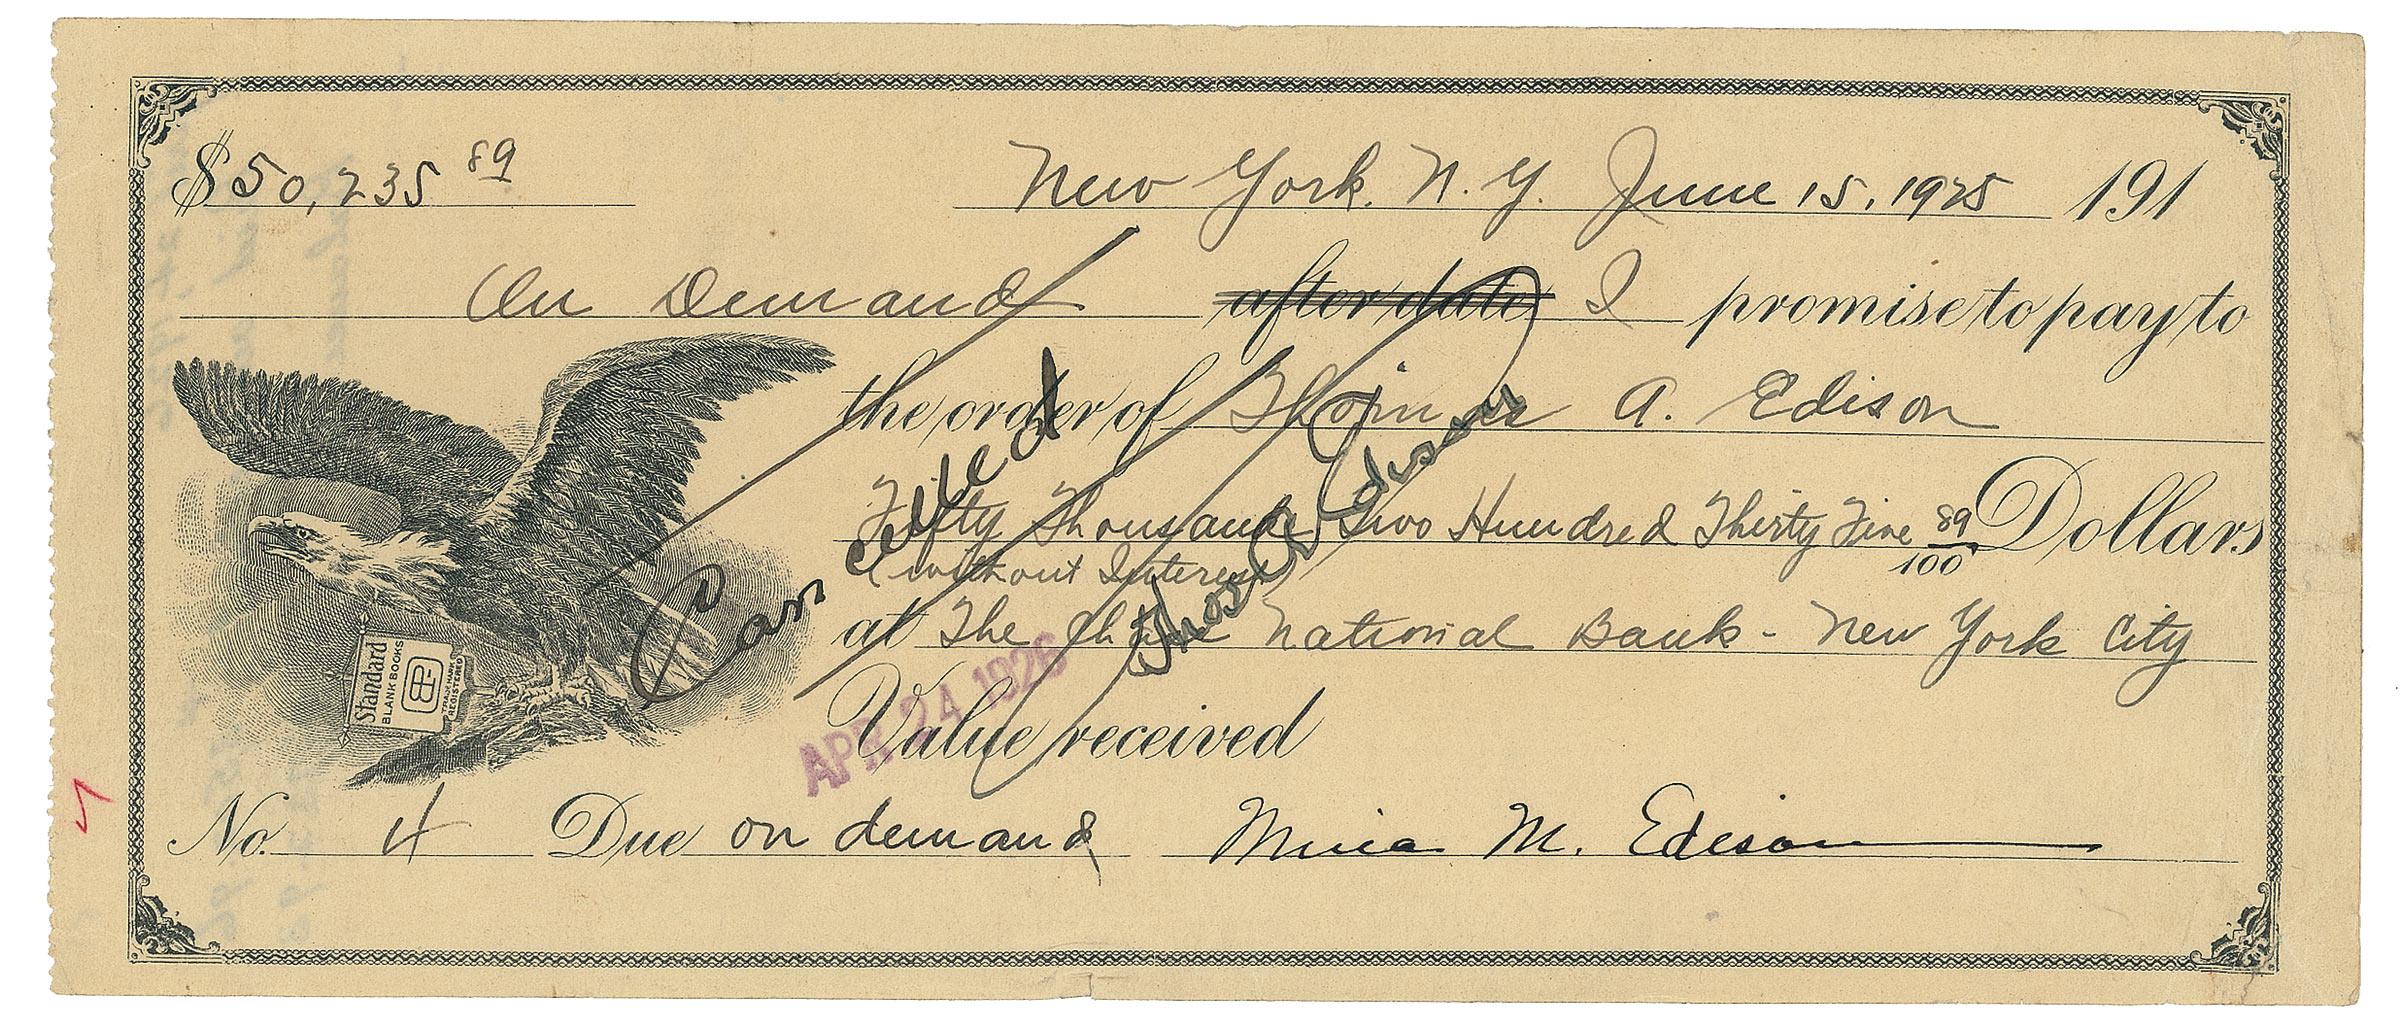 $50,235 89 New York. N. Y. June 15, 1925 191
On Demand after date I promise to pay to
the order of Thomas A. Edison
Fifty Thousand Two Hundred Thirty Five 89/100 Dollars
(without Interest)
at The Chase National Bank - New York City
Value received
No. 4 Due on demand Mina M. Edison
Cancelled
Thos A Edison
APR 24 1926
Standard
BLANK BOOKS
TRADE MARK
REGISTERED